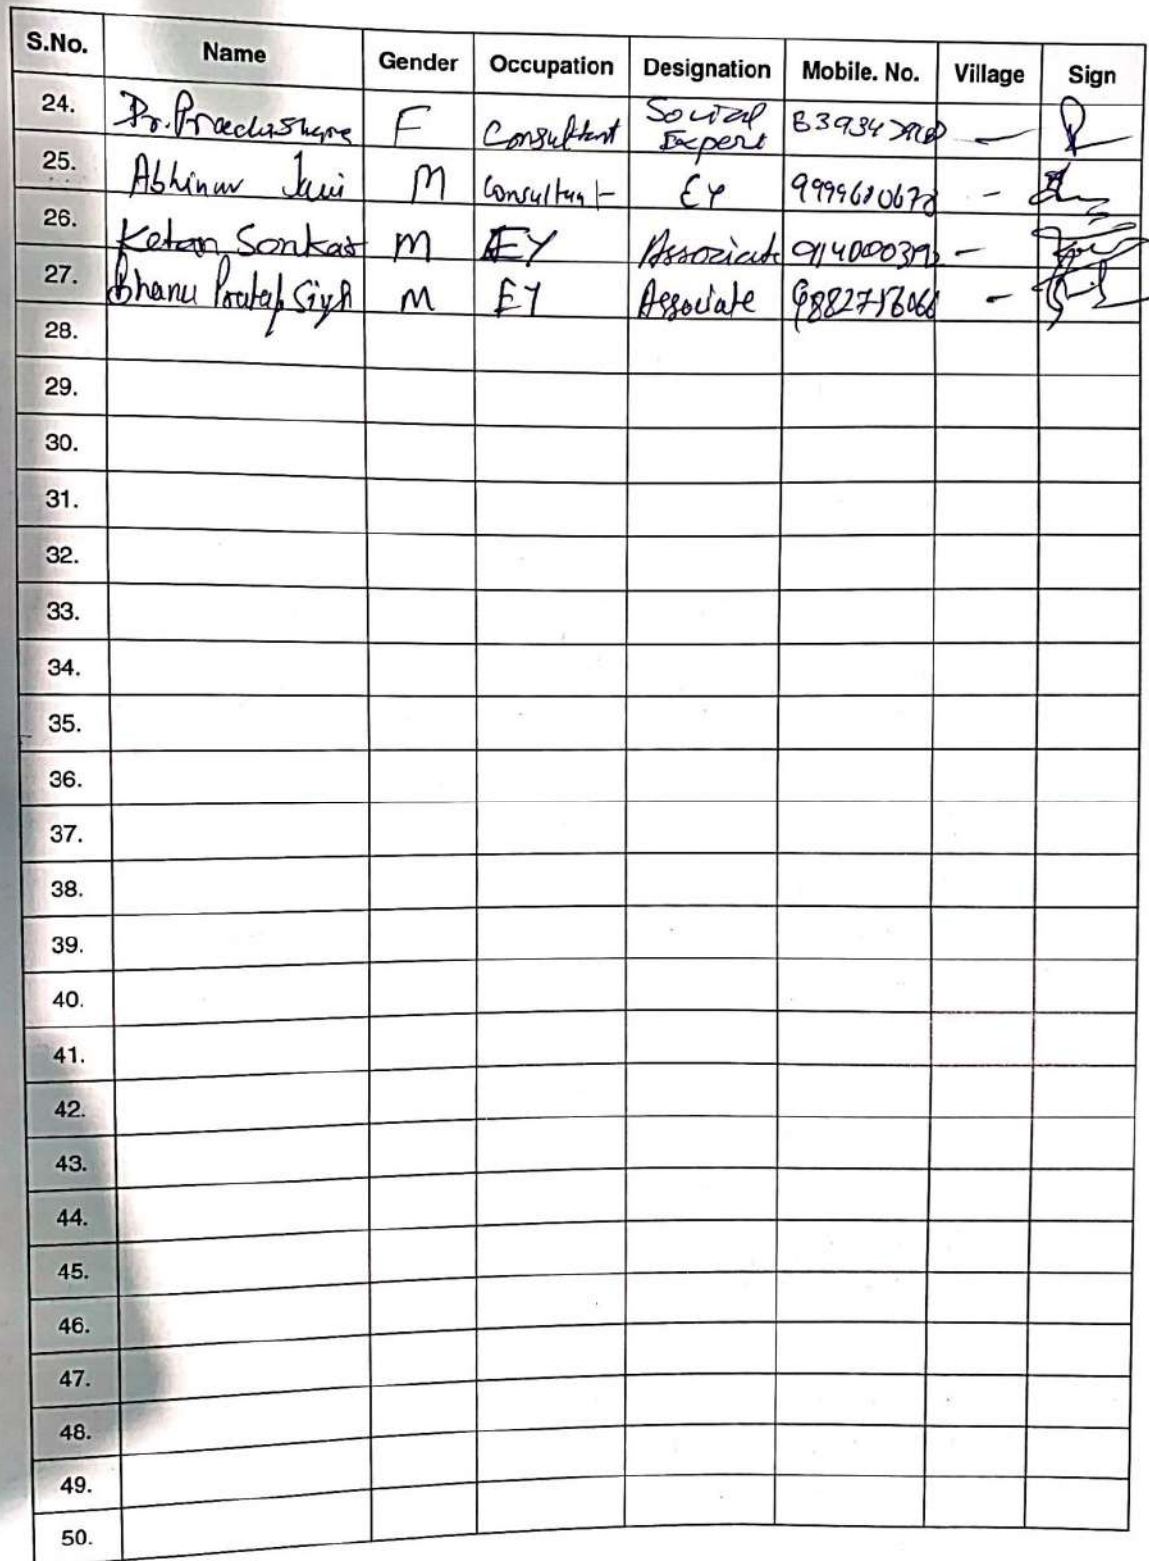 S.No. Name Gender Occupation Designation Mobile. No. Village Sign
24. Dr. F Consultant Social Expert —
25. Abhinav Jain M Consultant EY -
26. Ketan Sonkar M EY Associate —
27. Bhanu Pratap Singh M EY Associate -
28.
29.
30.
31.
32.
33.
34.
35.
36.
37.
38.
39.
40.
41.
42.
43.
44.
45.
46.
47.
48.
49.
50.